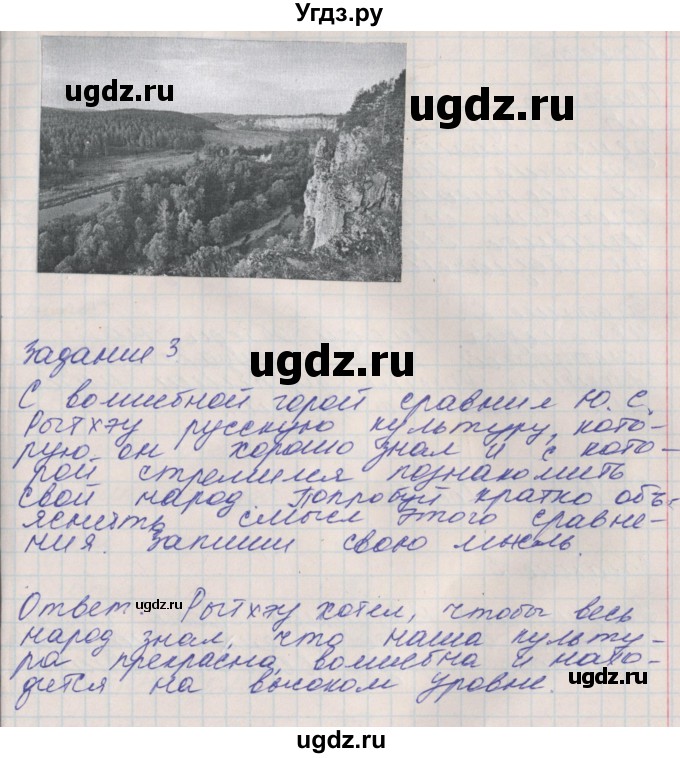 Угдз.ру
ugdz.ru
ugdz.ru
Задание 3
ugdz.ru
С волшебной горой сравнил Ю. С.
Рытхэу русскую культуру, кото-
рую он хорошо знал и с кото-
рой стремился познакомить
свой народ. Попробуй кратко объ-
яснить смысл этого сравне-
ния. Запиши свою мысль.
Ответ: ugdz.ru Рытхэу хотел, чтобы весь
народ знал, что наша культу-
ра прекрасна, волшебна и нахо-
дится на высоком уровне.
ugdz.ru
ugdz.ru